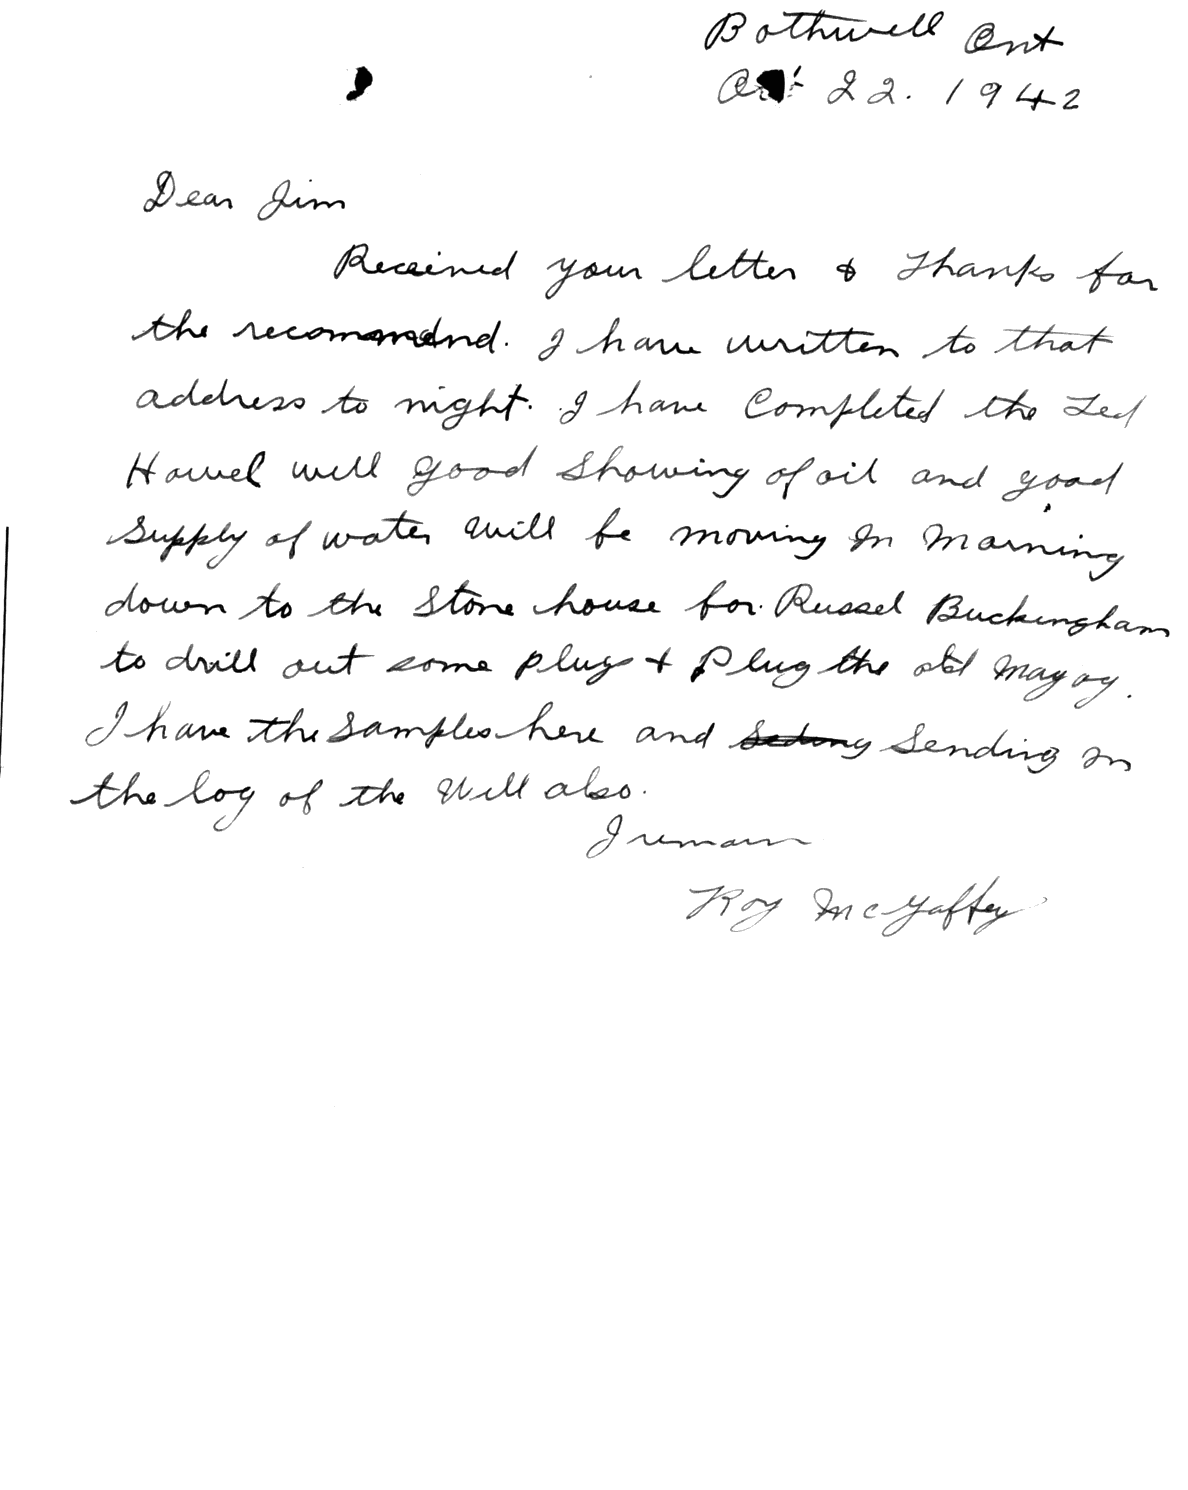 Bothwell Ont
Oct 22. 1942
Dear Jim
Received your letter & Thanks for
the recommend. I have written to that
address to night. I have Completed the Ted
Howel well good Showing of oil and good
Supply of water Will be moving In Morning
down to the Stone house for Russel Buckingham
to drill out some plugs + Plug the old Magog.
I have the Samples here and Seding Sending In
the log of the Well also.
I remain
Roy McGaffey